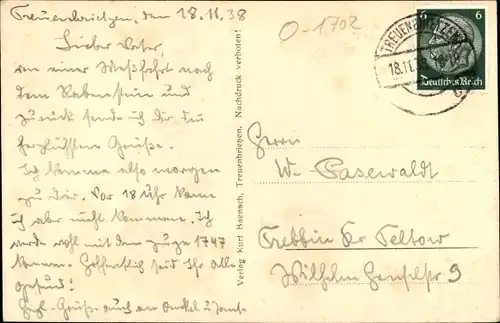 Treuenbrietzen, den 18.11.38
Lieber Vater,
von einer Meßfahrt nach
dem Rabenstein und
zurück sende ich Dir die
herzlichsten Grüße.
Ich komme also morgen
zu Dir. Vor 18 Uhr kann
ich aber nicht kommen. Ich
werde wohl mit dem Zuge 1747
kommen. Hoffentlich seid Ihr alle
gesund!
Herzl. Grüße auch an Onkel u Tante
Verlag Kurt Baensch, Treuenbrietzen. Nachdruck verboten!
O-1702
TREUENBRIETZEN
18.11.
6 6
Deutsches Reich
Herrn
W. Pasewaldt
Trebbin Kr Teltow
Wilhelm 9